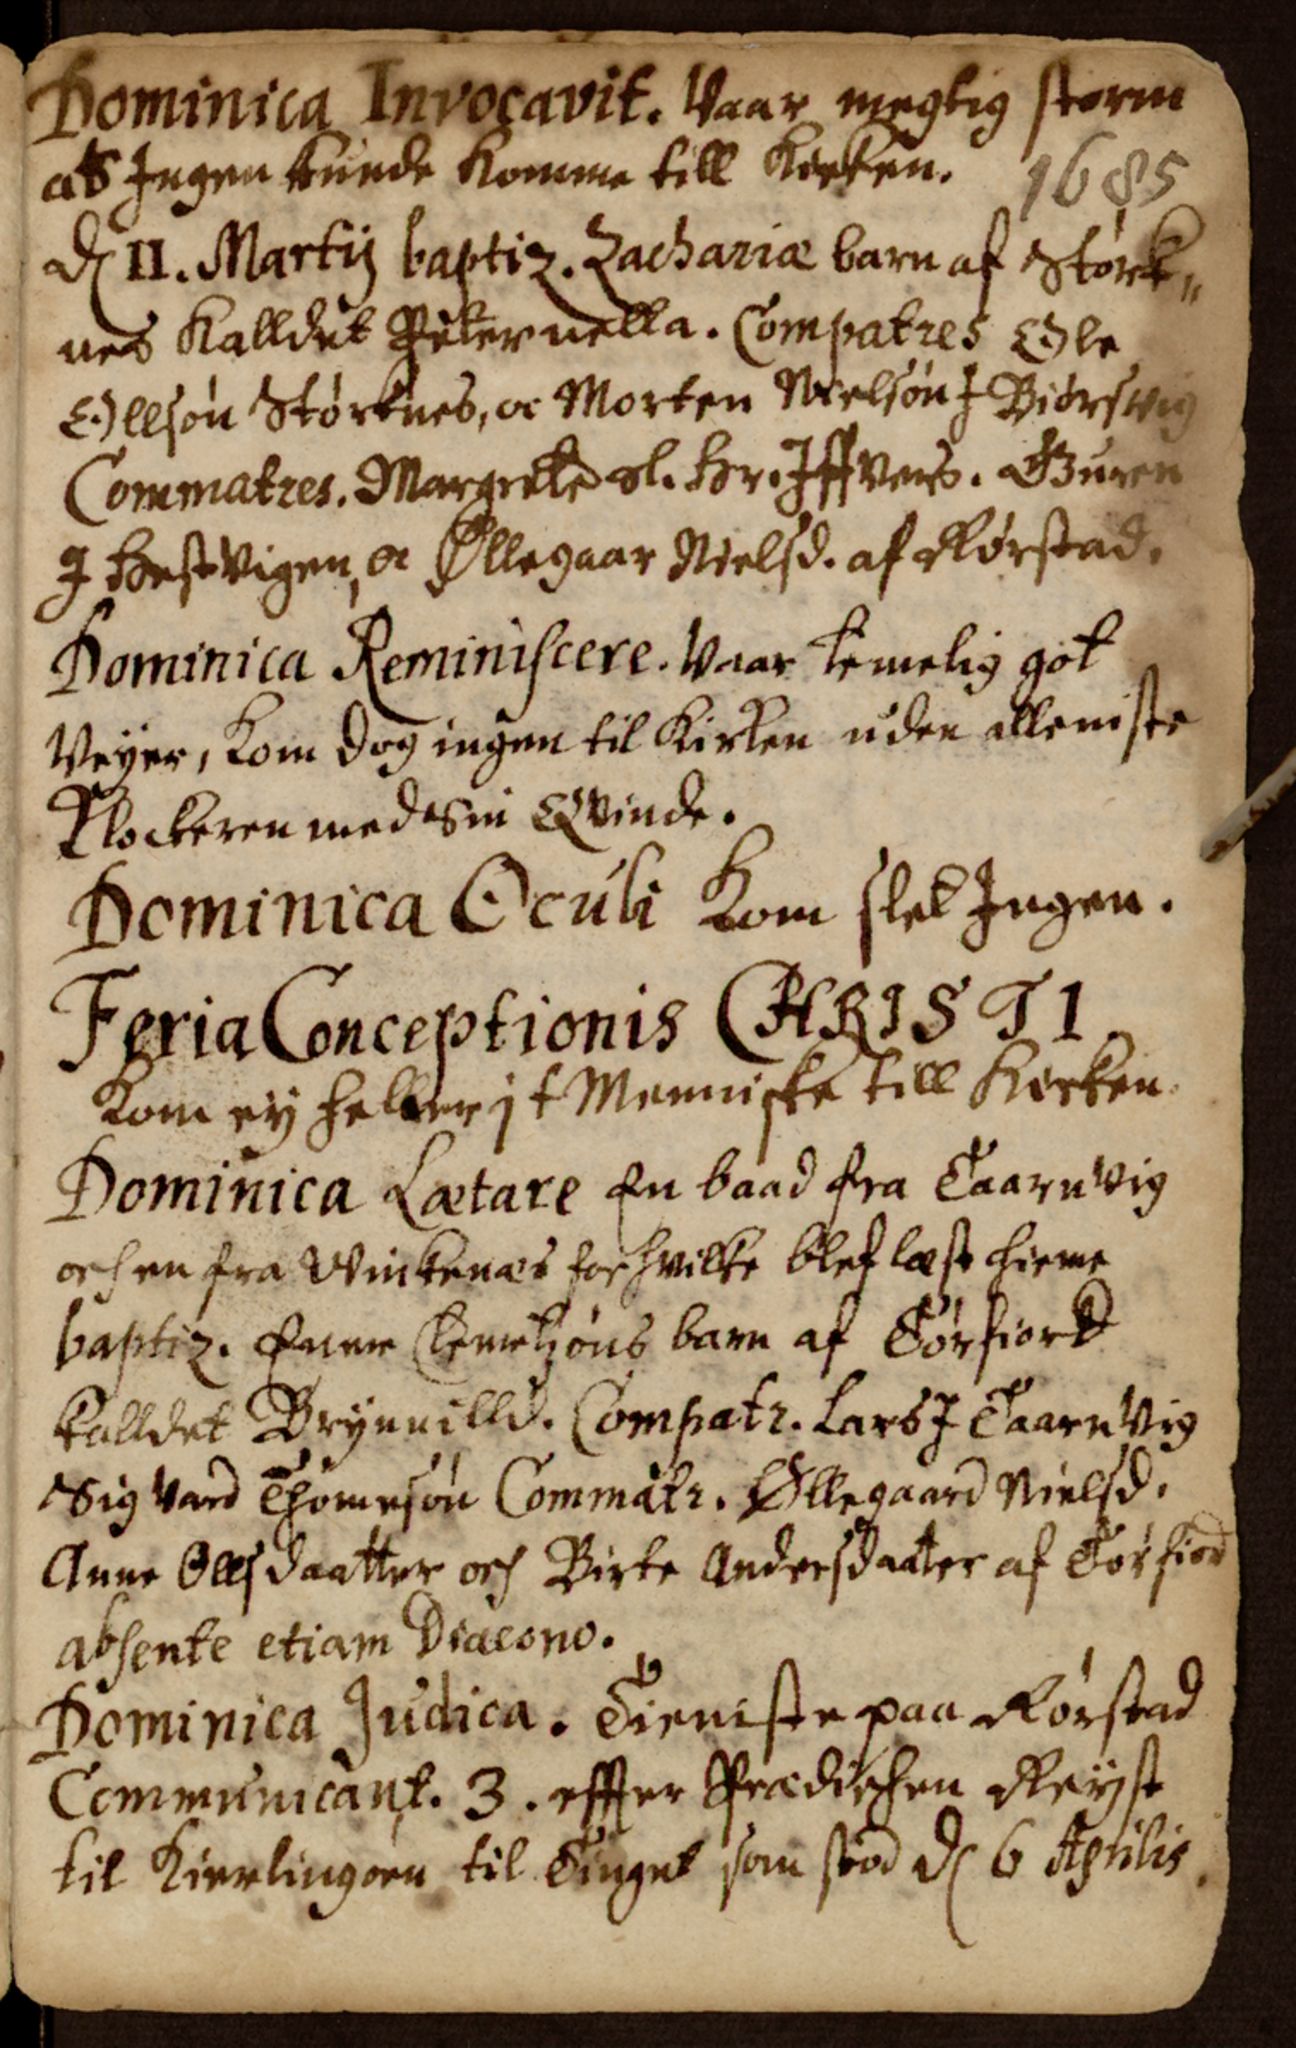 Dominica Invocavit. Vaar megtig storm
at Ingen kunde komme till Kirken.
1685
d 11. Martij baptiz. Zachariæ barn af Størk„
nes kalldet Peternella. Compatres Ole
Ollsøn Størknes, oc Morten Nielsøn J Biørsvig
Commatres. Margrete sl. Hr. Iffvers. Guren
J Hestvigen, oc Øllegaar Nielsd. af Rørstad.
Dominica Reminiscere. Vaar temelig got
Veyer, kom dog ingen til Kirken uden alleniste
Klockeren med Sin Qvinde.
Dominica Oculi kom slet Ingen.
Feria Conceptionis CHRISTI
kom ey heller it Menniske till Kirken.
Dominica Lætare En baad fra Taarnvig
och en fra Vinkenæs for hvilke blef læst hieme
baptiz. Enne barn af Tørfiord
kalldet Brynnilld. Compatr. Lars J Taarnvig
Sigvard Thomesøn Commatr. Øllegaard Nielsd.
Anne Ollsdaatter och Birte Andersdaater af Tørfiord
absente etiam Diacono.
Dominica Judica. Tieniste paa Rørstad
Communicant. 3. effter Prædichen Reyst
til Kierlingøen til Tinget som stod d 6 Aprilis.